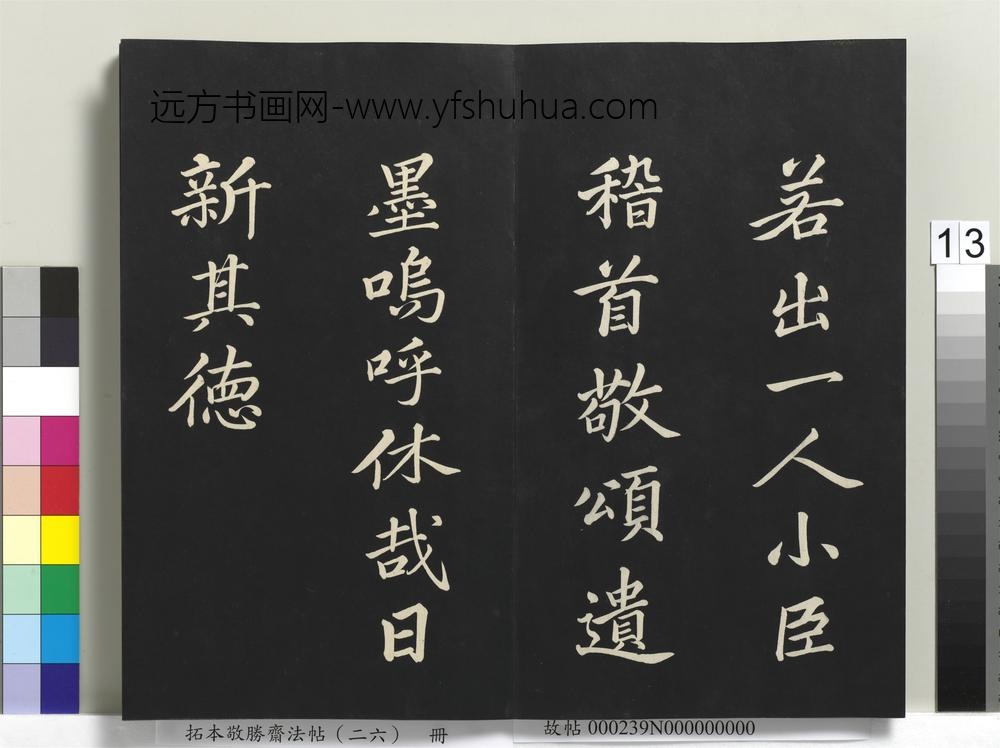 远方书画网-www.yfshuhua.com
若出一人小臣
稽首敬頌遺
墨嗚呼休哉日
新其德
13
拓本敬勝齋法帖（二六） 冊
故帖 000239N000000000